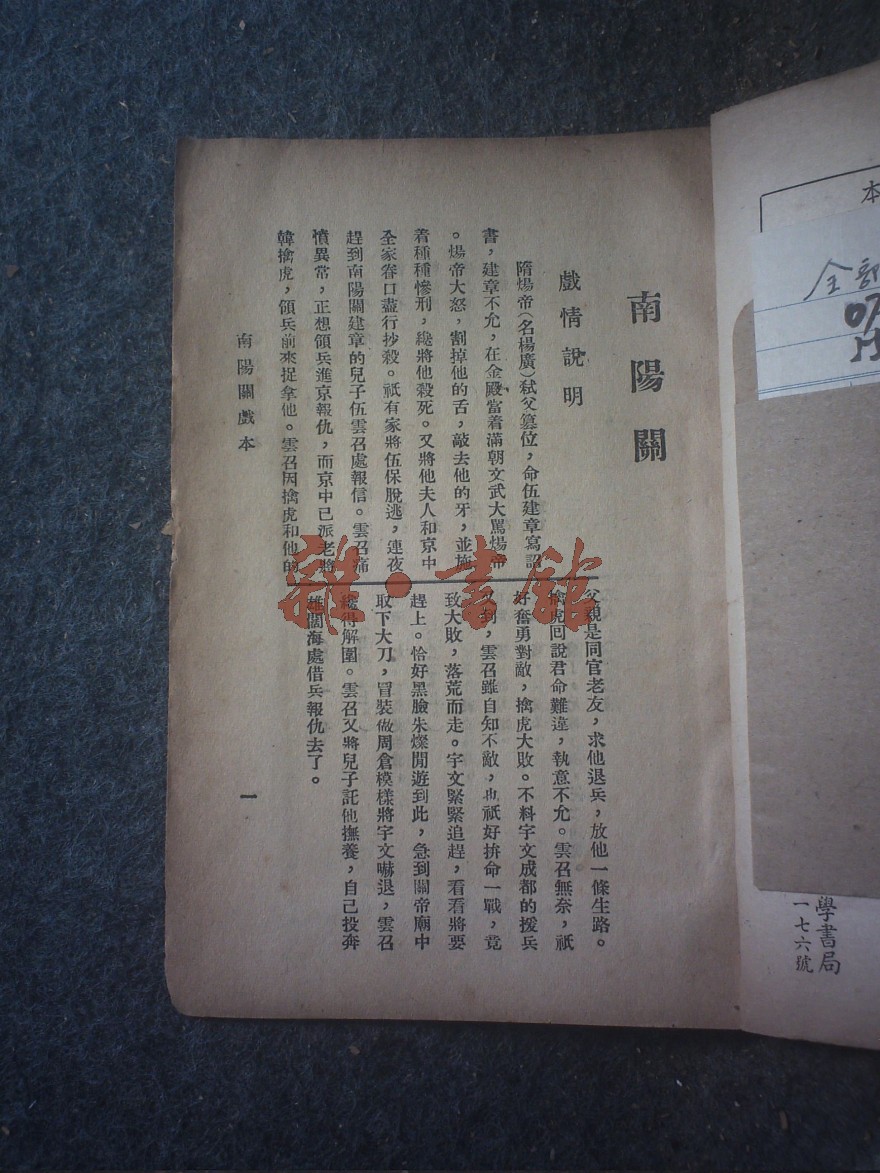 南陽關
戲情說明
隋煬帝(名楊廣)弒父篡位,命伍建章寫詔
書,建章不允,在金殿當着滿朝文武大罵煬帝
。煬帝大怒,割掉他的舌,敲去他的牙,並施
着種種慘刑,纔將他殺死。又將他夫人和京中
全家眷口盡行抄殺。祇有家將伍保脫逃,連夜
趕到南陽關建章的兒子伍雲召處報信。雲召痛
憤異常,正想領兵進京報仇,而京中已派老將
韓擒虎,領兵前來捉拿他。雲召因擒虎和他的
父親是同官老友,求他退兵,放他一條生路。
擒虎回說君命難違,執意不允。雲召無奈,祇
好奮勇對敵,擒虎大敗。不料宇文成都的援兵
到,雲召雖自知不敵,也祇好拚命一戰,竟
致大敗,落荒而走。宇文緊緊追趕,看看將要
趕上。恰好黑臉朱燦閒遊到此,急到關帝廟中
取下大刀,冒裝做周倉模樣將宇文嚇退,雲召
纔得解圍。雲召又將兒子託他撫養,自己投奔
雄闊海處借兵報仇去了。
南陽關戲本
一
雜·書館
本
全部
07
學書局
一七六號